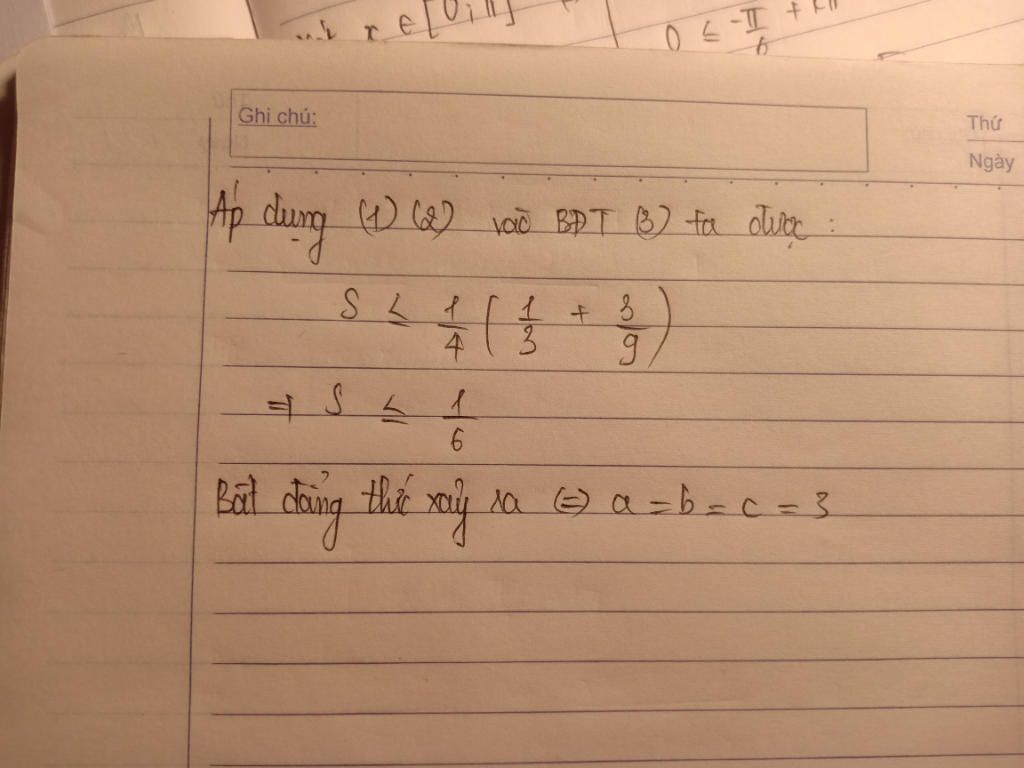 x ∈ [0; π]
0 ≤ -π/6 + kπ
Ghi chú:
Thứ
Ngày
Áp dụng (1) (2) vào BĐT (3) ta được :
S ≤ 1/4 ( 1/3 + 3/9 )
=> S ≤ 1/6
Bất đẳng thức xảy ra <=> a = b = c = 3